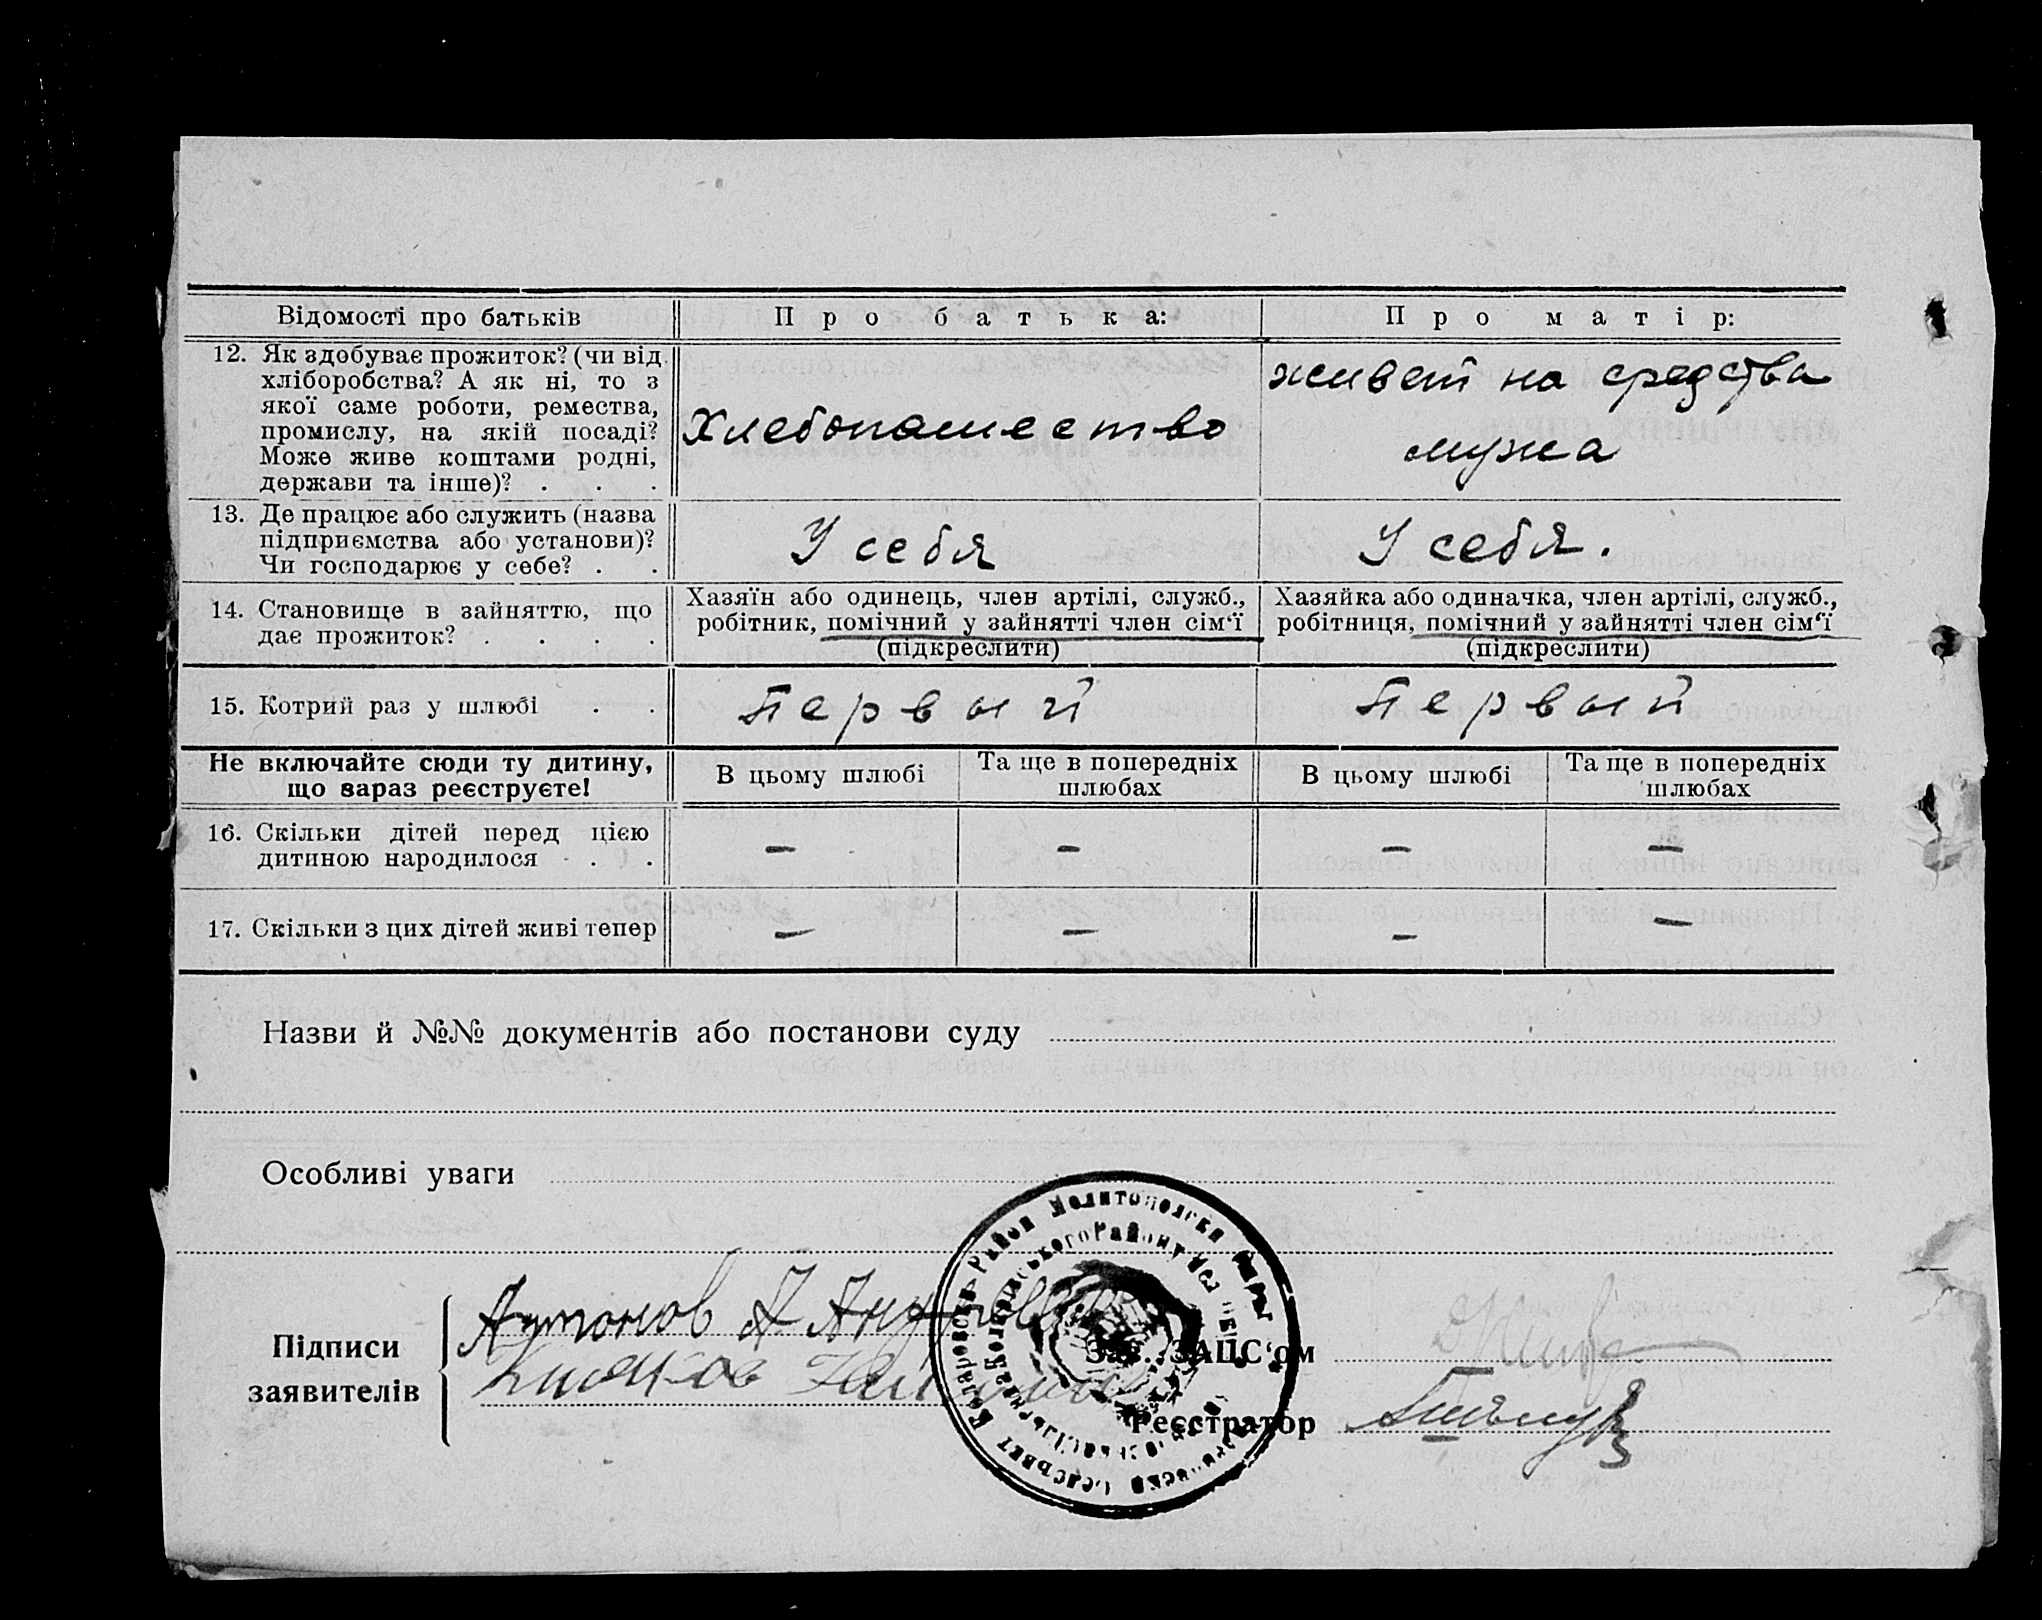 Відомості про батьків
Про батька:
Про матір:
12. Як здобуває прожиток? (чи від
хліборобства? А як ні, то з
якої саме роботи, ремества,
промислу, на якій посаді?
Може живе коштами родні,
держави та інше)? . . .
Хлебопашество
живет на средства
мужа
13. Де працює або служить (назва
підприємства або установи)?
Чи господарює у себе? . .
У себя
У себя.
14. Становище в зайняттю, що
дає прожиток? . . . .
Хазяїн або одинець, член артілі, служб.,
робітник, помічний у зайнятті член сім'ї
(підкреслити)
Хазяйка або одиначка, член артілі, служб.,
робітниця, помічний у зайнятті член сім'ї
(підкреслити)
15. Котрий раз у шлюбі . .
Первый
Первый
Не включайте сюди ту дитину,
що зараз реєструєте!
В цьому шлюбі
Та ще в попередніх
шлюбах
В цьому шлюбі
Та ще в попередніх
шлюбах
16. Скільки дітей перед цією
дитиною народилося . .
— — — —
17. Скільки з цих дітей живі тепер
— — — —
Назви й №№ документів або постанови суду
Особливі уваги
Підписи
заявителів
Антонов А.
Зав. ЗАЦС'ом
Реєстратор